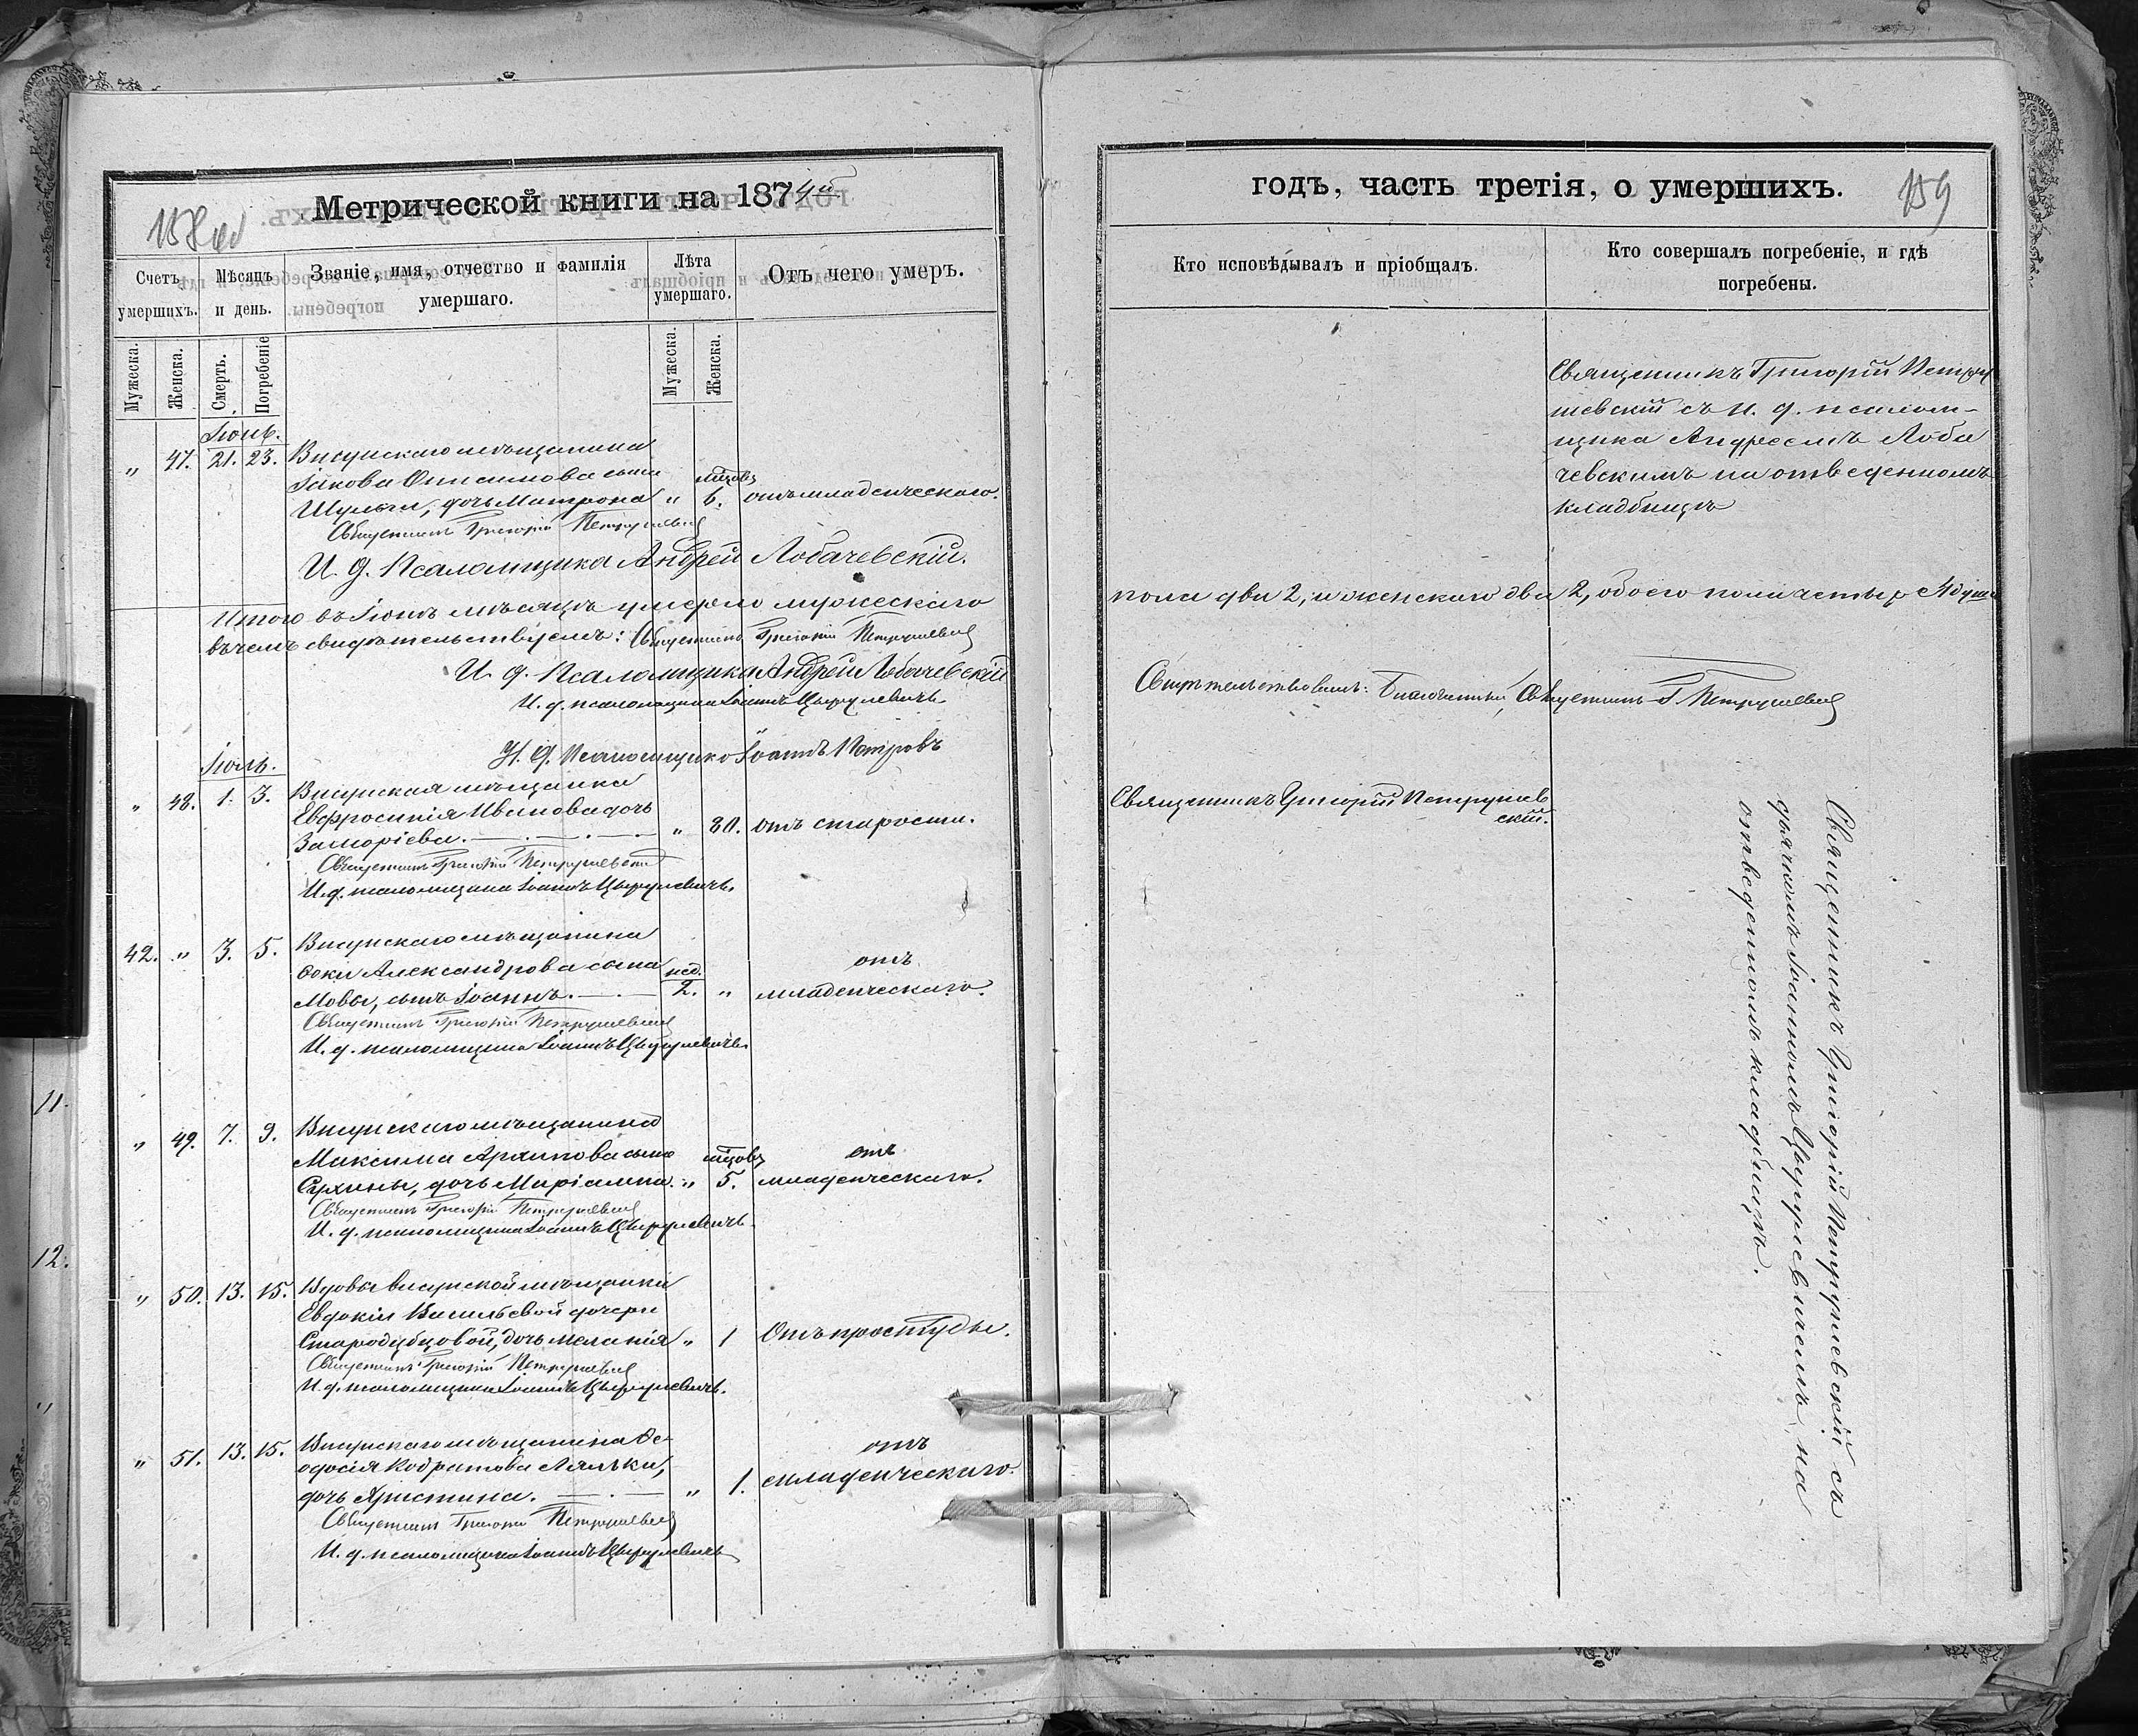 Метрической книги на 1874й
158 об
Счетъ умершихъ.
Мѣсяцъ и день.
Званіе, имя, отчество и фамилія умершаго.
Лѣта умершаго.
Отъ чего умеръ.
Мужеска.
Женска.
Смерть.
Погребеніе
Мужеска.
Женска.
Іюнь.
" 47. 21. 23. Висунскаго мѣщанина
Іакова Онисимова сына мцовъ
Шульги, дочь Матрона " 6. отъ младенческаго.
Священникъ Григорій Петрушевскій
И. д. Псаломщика Андрей Лобачевскій.
Итого въ Іюнѣ мѣсяцѣ умерло мужескаго
въ чемъ свидѣтельствуемъ: Священникъ Григорій Петрушевскій
И. д. Псаломщика Андрей Лобачевскій
И. д. псаломщика Іоаннъ Цыруневичъ.
И. д. Псаломщика Іоаннъ Петровъ
Іюль.
" 48. 1. 3. Висунская мѣщанка
Евфросинія Иванова дочь
" 80. отъ старости.
Священникъ Григорій Петрушевскій
И. д. псаломщика Іоаннъ Цыруневичъ.
42. " 3. 5. Висунскаго мѣщанина
Фоки Александрова сына нед. отъ
Мовы, сынъ Іоаннъ. 2. " младенческаго.
Священникъ Григорій Петрушевскій
И. д. псаломщика Іоаннъ Цыруневичъ.
" 49. 7. 9. Висунскаго мѣщанина
Максима Архипова сына мцовъ отъ
Сухины, дочь Маріамна. " 5. младенческаго.
Священникъ Григорій Петрушевскій
И. д. псаломщика Іоаннъ Цыруневичъ.
" 50. 13. 15. Вдовы висунской мѣщанки
Евдокіи Васильевой дочери
Стародубцовой, дочь Меланія " 1 Отъ простуды.
Священникъ Григорій Петрушевскій
И. д. псаломщика Іоаннъ Цыруневичъ.
" 51. 13. 15. Висунскаго мѣщанина Ѳе-
одосія Кодратова Ляльки, отъ
дочь Христина. " 1. младенческаго.
Священникъ Григорій Петрушевскій
И. д. псаломщика Іоаннъ Цыруневичъ
годъ, часть третія, о умершихъ.
159
Кто исповѣдывалъ и пріобщалъ.
Кто совершалъ погребеніе, и гдѣ погребены.
Священникъ Григорій Петру
шевскій съ И. д. псалом-
щика Андреемъ Лоба
чевскимъ на отведенномъ
кладбищѣ
пола два 2, и женскаго два 2, обоего пола четыре 4 души
Свидѣтельствовалъ: Благочинный, Священникъ Г Петрушевскій
Священникъ Григорій Петрушев
скій.
Священникъ Григорій Петрушевскій съ
дьячкомъ Іоанномъ Цыруневичемъ на
отведенномъ кладбищѣ.
11.
12.